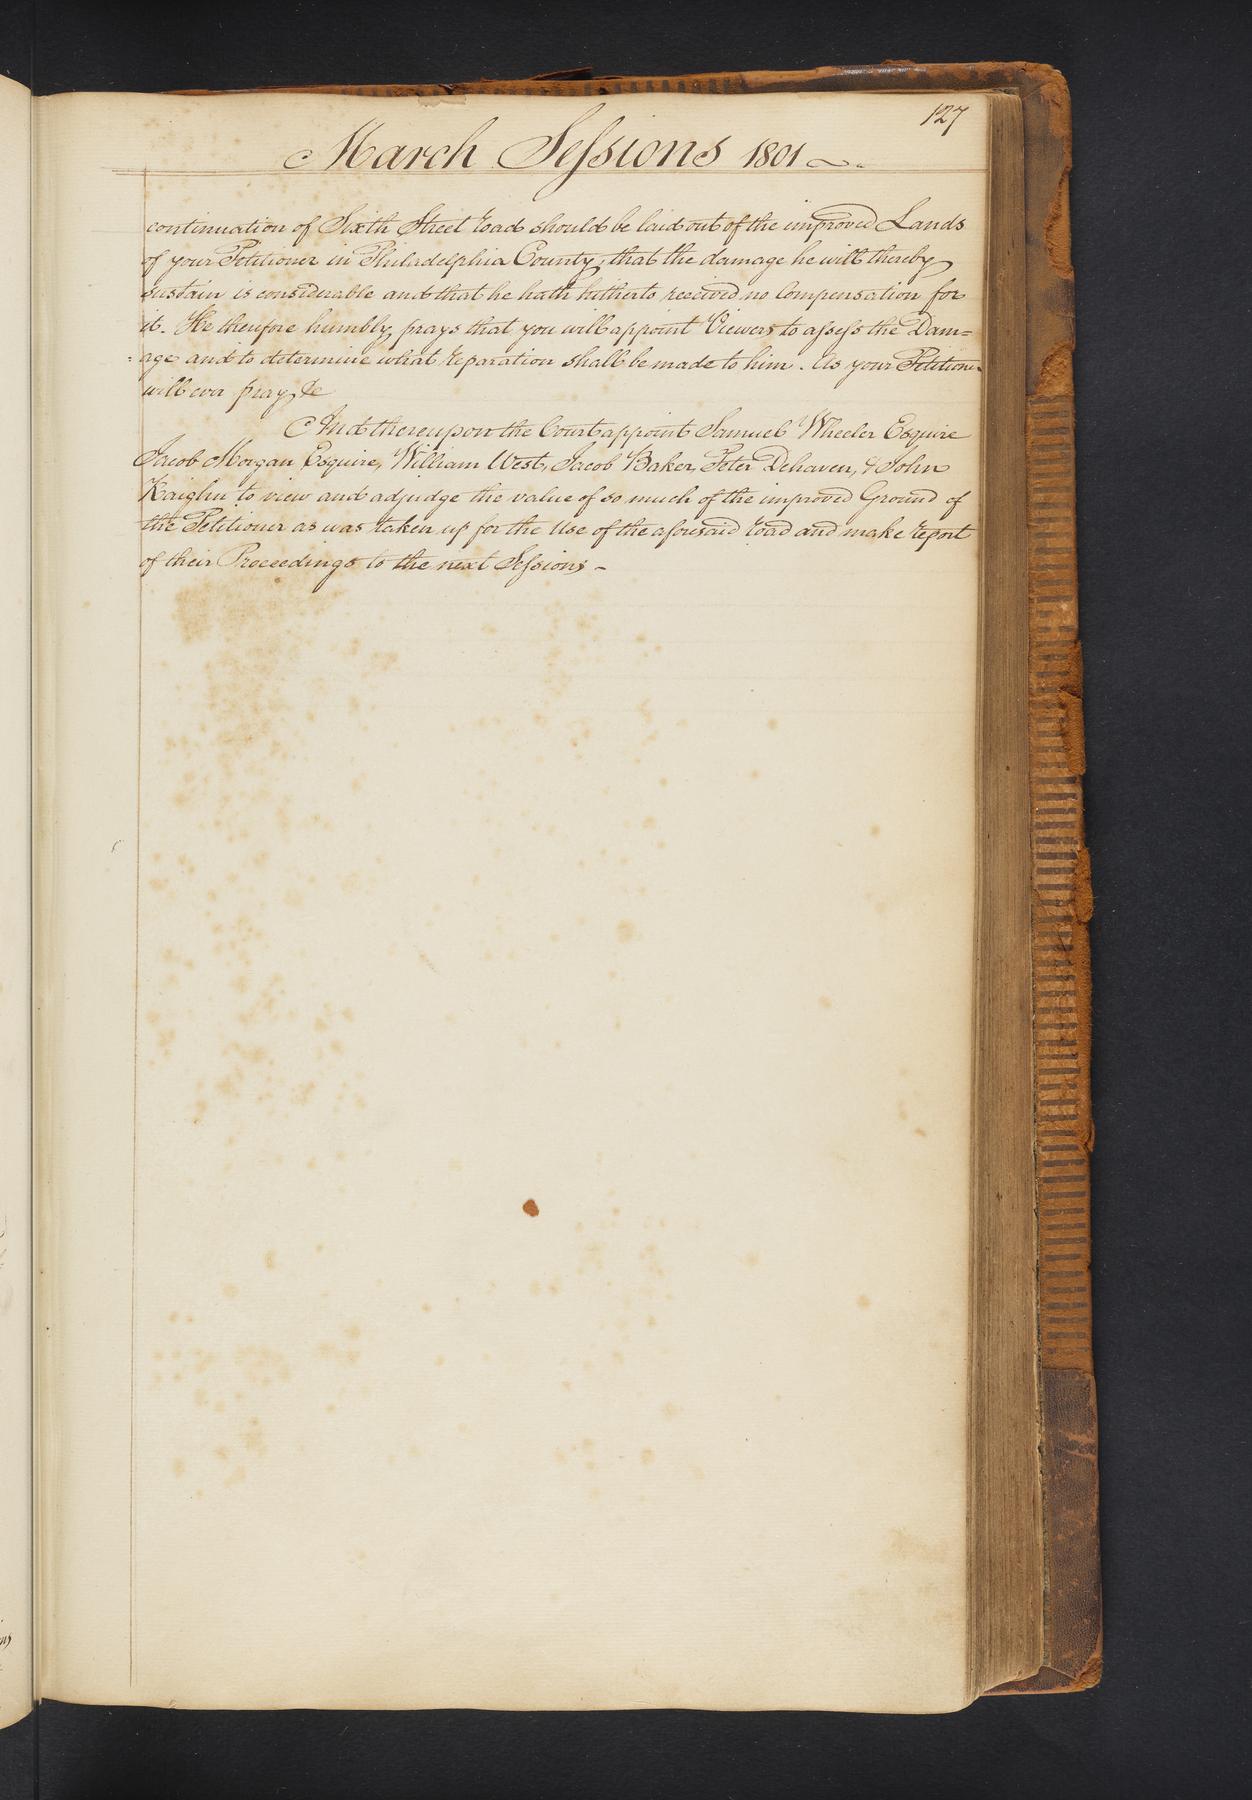 127
March Sessions 1801
continuation of Sixth Street road should be laid out of the improved Lands
of your Petitioner in Philadelphia County, that the damage he will thereby
sustain is considerable and that he hath hitherto received no Compensation for
it. He therefore humbly prays that you will appoint Viewers to assess the Dam=
=age and to determine what reparation shall be made to him. As your Petitioner
will ever pray, &c
And thereupon the Court appoint Samuel Wheeler Esquire
Jacob Morgan Esquire, William West, Jacob Baker, Peter Dehaven, & John
Kaighn to view and adjudge the value of so much of the improved Ground of
the Petitioner as was taken up for the Use of the aforesaid road and make report
of their Proceedings to the next Sessions -